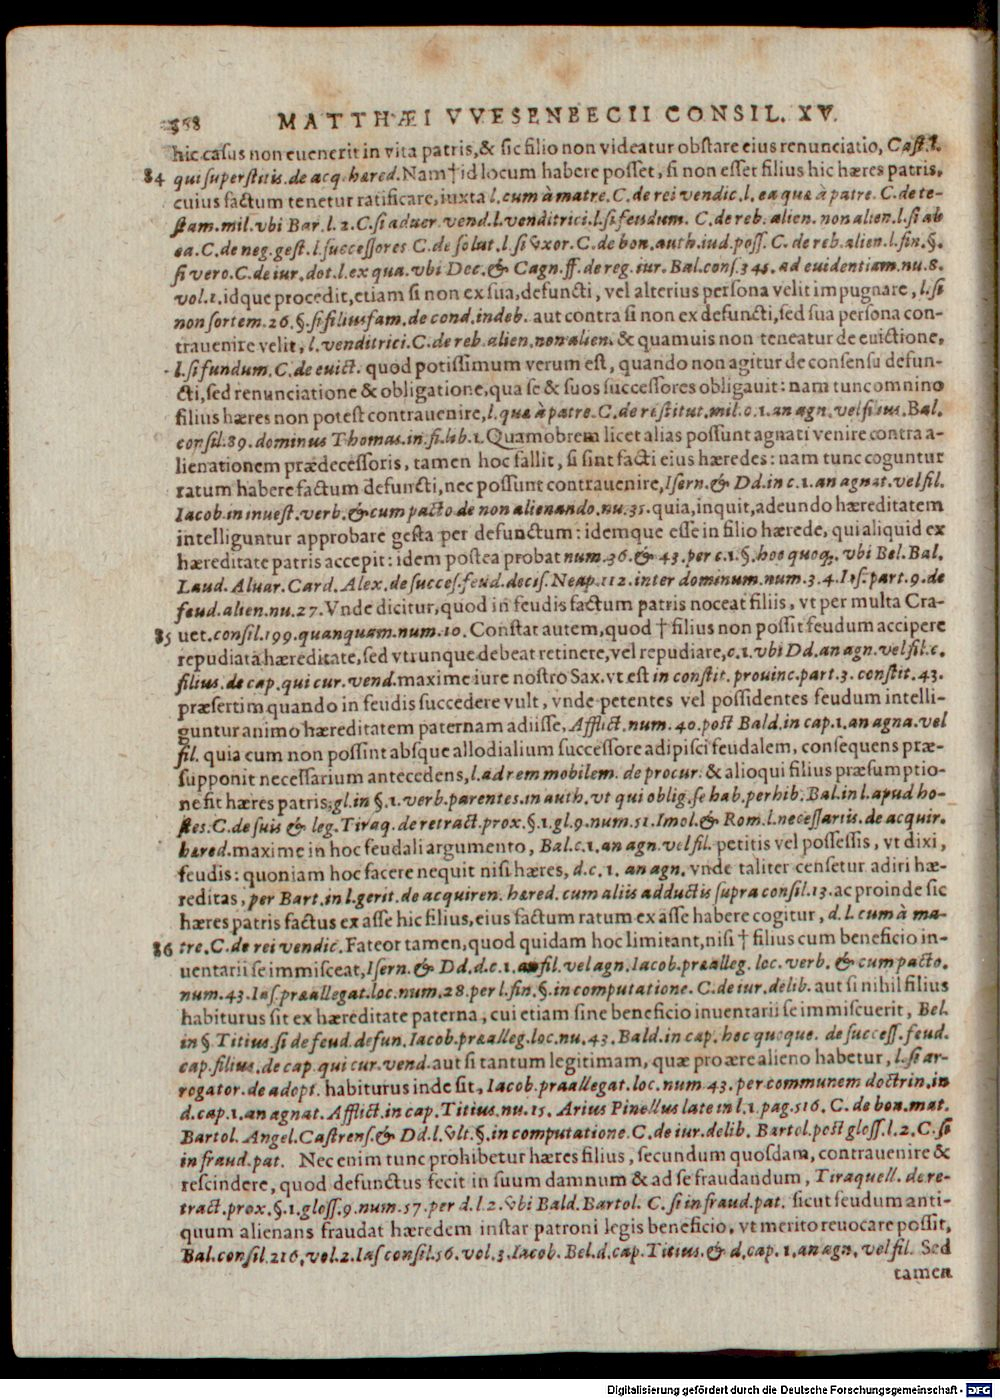 368 MATTHÆI VVESENBECII CONSIL. XV.
hic casus non euenerit in vita patris, & sic filio non videatur obstare eius renunciatio, Cast. l.
84 qui superstitis. de acq. hæred. Nam † id locum habere posset, si non esset filius hic hæres patris,
cuius factum tenetur ratificare, iuxta l. cum à matre. C. de rei vendic. l. ea quæ à patre. C. de te-
stam. mil. vbi Bar. l. 2. C. si aduer. vend. l. venditrici. l. si fundum. C. de reb. alien. non alien. l. si ab
ea. C. de neg. gest. l. successores C. de solut. l. si vxor. C. de bon. auth. iud. poss. C. de reb. alien. l. fin. §.
si vero. C. de iur. dot. l. ex qua. vbi Dec. & Cagn. ff. de reg. iur. Bal. cons. 345. ad euidentiam. nu. 8.
vol. 1. idque procedit, etiam si non ex sua, defuncti, vel alterius persona velit impugnare, l. si
non sortem. 26. §. si filiusfam. de cond. indeb. aut contra si non ex defuncti, sed sua persona con-
trauenire velit, l. venditrici. C. de reb. alien. non alien. & quamuis non teneatur de euictione,
l. si fundum. C. de euict. quod potissimum verum est, quando non agitur de consensu defun-
cti, sed renunciatione & obligatione, qua se & suos successores obligauit: nam tunc omnino
filius hæres non potest contrauenire, l. quæ à patre. C. de restitut. mil. c. 1. an agn. vel filius. Bal.
consil. 89. dominus Thomas. in. fi. lib. 1. Quamobrem licet alias possunt agnati venire contra a-
lienationem prædecessoris, tamen hoc fallit, si sint facti eius hæredes: nam tunc coguntur
ratum habere factum defuncti, nec possunt contrauenire, Isern. & Dd. in c. 1. an agnat. vel fil.
Iacob. in inuest. verb. & cum pacto de non alienando. nu. 35. quia, inquit, adeundo hæreditatem
intelliguntur approbare gesta per defunctum: idemque esse in filio hærede, qui aliquid ex
hæreditate patris accepit: idem postea probat num. 36. & 43. per c. 1. §. hoc quoq;. vbi Bel. Bal.
Laud. Aluar. Card. Alex. de succes. feud. decis. Neap. 112. inter dominum. num. 3. 4. Ias. part. 9. de
feud. alien. nu. 27. Vnde dicitur, quod in feudis factum patris noceat filiis, vt per multa Cra-
85 uet. consil. 199. quanquam. num. 10. Constat autem, quod † filius non possit feudum accipere
repudiata hæreditate, sed vtrunque debeat retinere, vel repudiare, c. 1. vbi Dd. an agn. vel fil. c.
filius. de cap. qui cur. vend. maxime iure nostro Sax. vt est in constit. prouinc. part. 3. constit. 43.
præsertim quando in feudis succedere vult, vnde petentes vel possidentes feudum intelli-
guntur animo hæreditatem paternam adiisse, Afflict. num. 40. post Bald. in cap. 1. an agna. vel
fil. quia cum non possint absque allodialium successore adipisci feudalem, consequens præ-
supponit necessarium antecedens, l. ad rem mobilem. de procur. & alioqui filius præsumptio-
ne sit hæres patris, gl. in §. 1. verb. parentes. in auth. vt qui oblig. se hab. perhib. Bal. in l. apud ho-
stes. C. de suis & leg. Tiraq. de retract. prox. §. 1. gl. 9. num. 51. Imol. & Rom. l. necessarius. de acquir.
hæred. maxime in hoc feudali argumento, Bal. c. 1. an agn. vel fil. petitis vel possessis, vt dixi,
feudis: quoniam hoc facere nequit nisi hæres, d. c. 1. an agn. vnde taliter censetur adiri hæ-
reditas, per Bart. in l. gerit. de acquiren. hæred. cum aliis adductis supra consil. 13. ac proinde sic
hæres patris factus ex asse hic filius, eius factum ratum ex asse habere cogitur, d. l. cum à ma-
86 tre. C. de rei vendic. Fateor tamen, quod quidam hoc limitant, nisi † filius cum beneficio in-
uentarii se immisceat, Isern. & Dd. d. c. 1. an fil. vel agn. Iacob. præalleg. loc. verb. & cum pacto.
num. 43. Ias. præallegat. loc. num. 28. per l. fin. §. in computatione. C. de iur. delib. aut si nihil filius
habiturus sit ex hæreditate paterna, cui etiam sine beneficio inuentarii se immiscuerit, Bel.
in §. Titius. si de feud. defun. Iacob. præalleg. loc. nu. 43. Bald. in cap. hoc quoque. de success. feud.
cap. filius. de cap. qui cur. vend. aut si tantum legitimam, quæ pro ære alieno habetur, l. si ar-
rogator. de adopt. habiturus inde sit, Iacob. præallegat. loc. num. 43. per communem doctrin. in
d. cap. 1. an agnat. Afflict. in cap. Titius. nu. 15. Arius Pinellus late in l. 1. pag. 516. C. de bon. mat.
Bartol. Angel. Castrens. & Dd. l. vlt. §. in computatione. C. de iur. delib. Bartol. post gloss. l. 2. C. si
in fraud. pat. Nec enim tunc prohibetur hæres filius, secundum quosdam, contrauenire &
rescindere, quod defunctus fecit in suum damnum & ad se fraudandum, Tiraquell. de re-
tract. prox. §. 1. gloss. 9. num. 57. per d. l. 2. vbi Bald. Bartol. C. si in fraud. pat. sicut feudum anti-
quum alienans fraudat hæredem instar patroni legis beneficio, vt merito reuocare possit,
Bal. consil. 216, vol. 2. Ias consil. 56. vol. 3. Iacob. Bel. d. cap. Titius. & d. cap. 1. an agn. vel fil. Sed
tamen
Digitalisierung gefördert durch die Deutsche Forschungsgemeinschaft - DFG